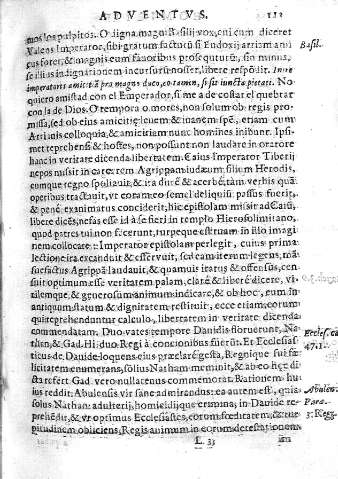 ADVENTVS. 111
mos los pulpitos. O digna magni Basilij vox, cui cum diceret
Valens Imperator, sibi gratum facturũ si Eudoxij arriani ami
cus foret, & magnis eum fauoribus prosequuturũ, sin minus,
se illius indignationem incursurũ noster, libere respõdit. Inue
imperatoris amicitiã pra magno duco, eo tamen, si sit iuncta pietati. No
quiero amistad con el Emperador, si me a de costar el quebrar
con la de Dios. O tempora o mores, non solum ob regis pro
missa, sed ob eius amicitię lenem & inanem spẽ, etiam cum
Arrianis colloquia, & amicitiam nunc homines inibunt. Ipsi
met reprehensi & hostes, non possunt non laudare in oratore
hanc in veritate dicenda libertatem. Caius Imperator Tiberij
nepos misit in carcerem Agrippam iudæum filium Herodis,
eumque regno spoliauit, & ita durè & acerbè, tàm verbis quã
operibus tractauit, vt coram eo semel deliquiũ passus fuerit,
& penè exanimatus conciderit, hic epistolam misit ad Caiũ,
libere dicẽs, nefas esse id à se fieri in templo Hierosolimitano,
quod patres tui non fecerunt, turpeque est tuam in illo imagi
nem collocare: Imperator epistolam perlegit, cuius prima
lectione ira excanduit & efferuuit, sed cam iterum legens, mã
suefactus Agrippã laudauit, & quamuis iratus & offensus, cen
suit optimum esse veritatem palam, clarè & liberè dicere, vi
rilemque, & generosum animum indicare, & ob hoc, eum in
antiquum statum & dignitatem restituit, ecce etiam eorum
qui reprehenduntur calculo, libertatem in veritate dicenda
commendatam. Duo vates tempore Dauidis floruerunt, Na-
than, & Gad. Hi duo Regi à concionibus fuerũt. Et Ecclesias
ticus de Dauide loquens eius præclare gesta, Regnique sui fæ
licitatem enumerans, solius Natham meminit, & ab eo hęc di
cta refert Gad vero nullatenus commemorat. Rationem hu
ius reddit Abulensis vir sanè admirandus: ea autem est, quia
solus Nathan adulterij, homicidijque crimina, in Dauide re
prehẽdit, & vt optimus Ecclesiastes, eorum fœditatem, & tur
pitudinem obliciens, Regis animum in eorum detestationem
L 33 im
Basil.
Ecclesi.
47.1.
Abulens.
Para.
3. Regg.